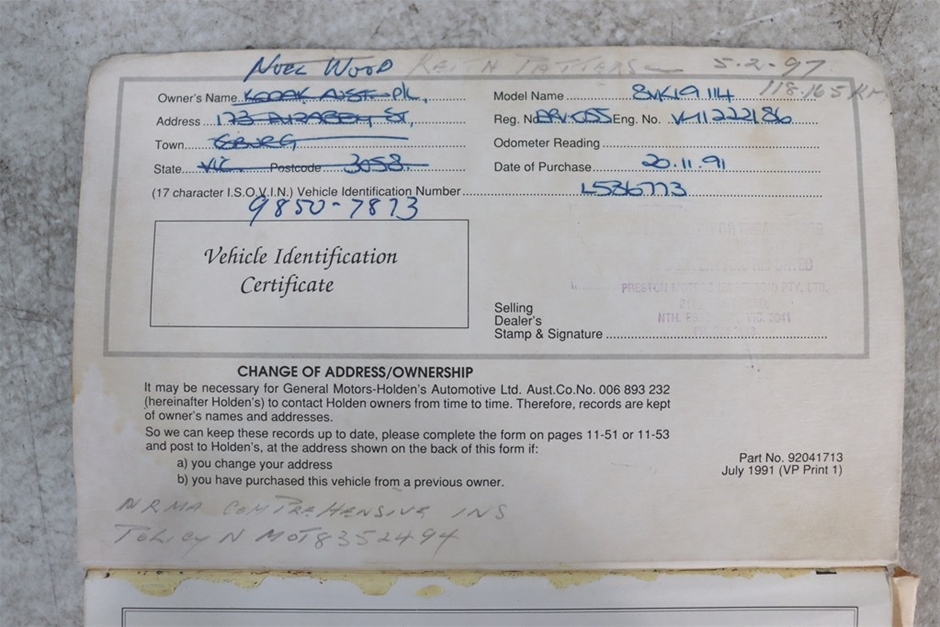 NOEL WOOD KEITH 5-2-97
118.165 Km
Owner's Name KODAK AUST P/L, Model Name 8VK19 114
Address 173 ELIZABETH ST, Reg. No. Eng. No. VH1222186
Town COBURG Odometer Reading
State VIC. Postcode 3058. Date of Purchase 20.11.91
(17 character I.S.O.V.I.N.) Vehicle Identification Number L536773
9850-7873
Vehicle Identification
Certificate
PRESTON MOTORS PTY. LTD.
Selling
Dealer's
Stamp & Signature
CHANGE OF ADDRESS/OWNERSHIP
It may be necessary for General Motors-Holden's Automotive Ltd. Aust.Co.No. 006 893 232
(hereinafter Holden's) to contact Holden owners from time to time. Therefore, records are kept
of owner's names and addresses.
So we can keep these records up to date, please complete the form on pages 11-51 or 11-53
and post to Holden's, at the address shown on the back of this form if:
a) you change your address
b) you have purchased this vehicle from a previous owner.
Part No. 92041713
July 1991 (VP Print 1)
NRMA COMPREHENSIVE INS
POLICY N MOT8352494